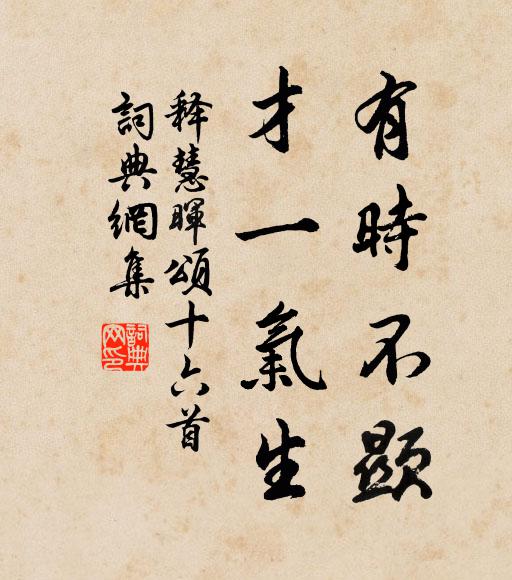 有時不顯
才一氣生
释慧暉頌十六首
詞典網集
詞典網印